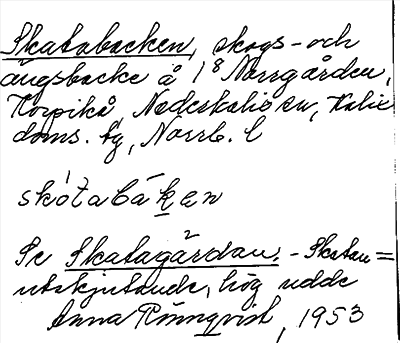 Skatabacken, skogs- och
ängsbacke å 1⁸ Norrgården,
Korpikå, Nederkalix sn, Kalix
doms. tg, Norrb. l
skátabáken
Se Skatagärdan. - Skatan =
utskjutande, hög udde
Anna Rönnqvist, 1953